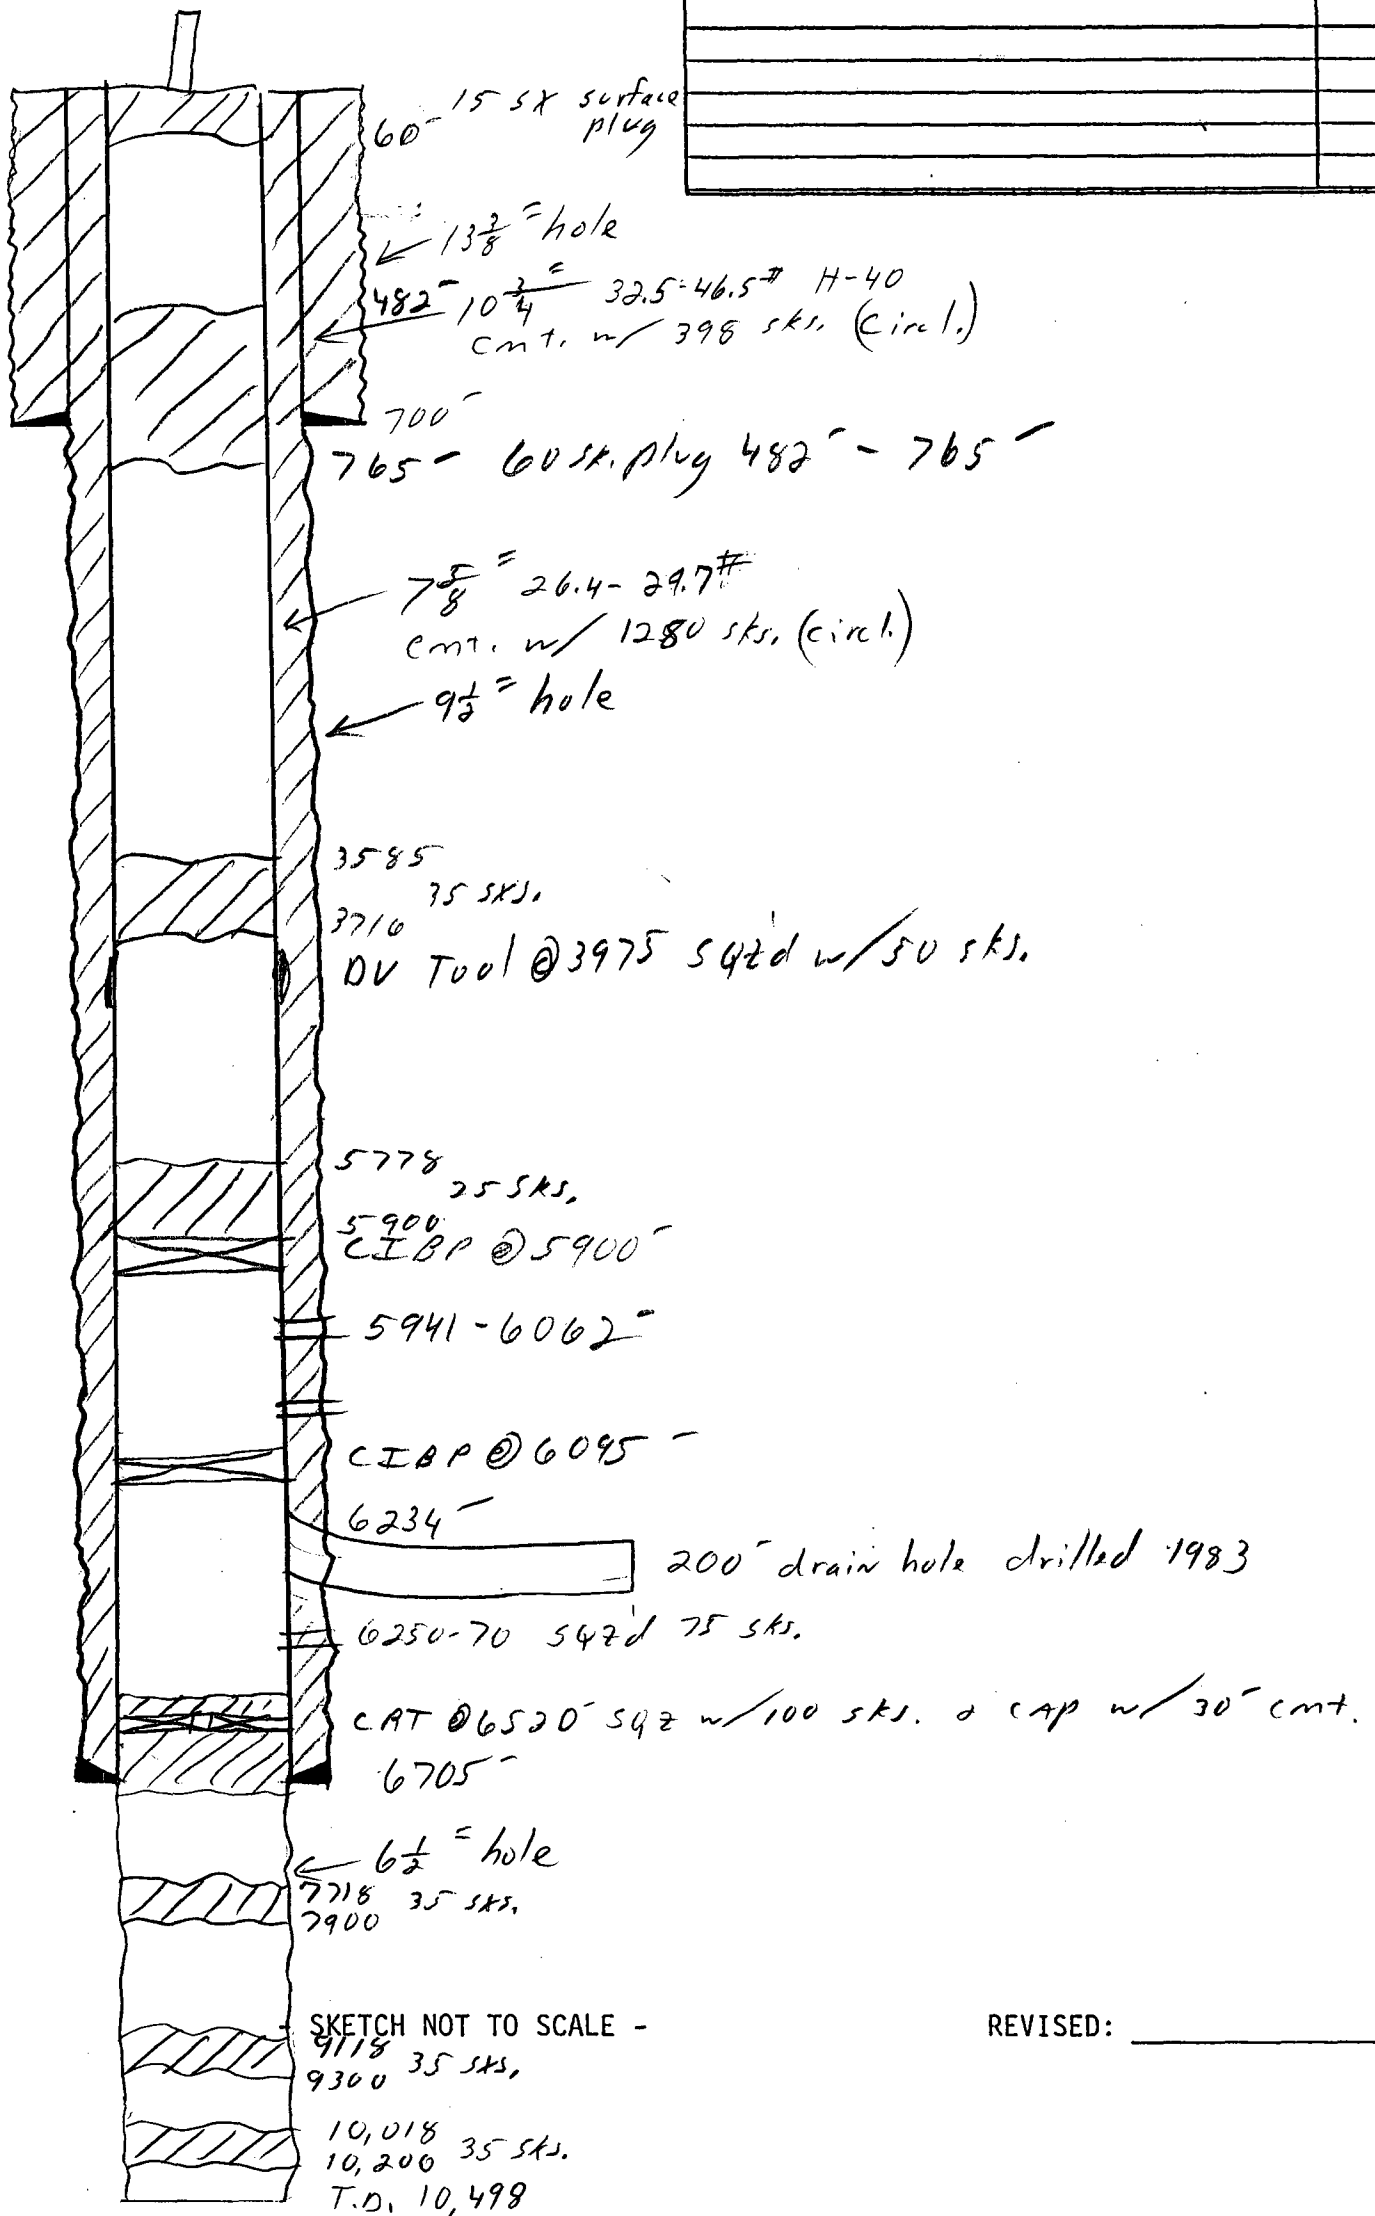 15 sx surface
60' plug
13 3/8" hole
482' 10 3/4" 32.5-46.5# H-40
cmt. w/ 398 sks. (circl.)
700'
765' 60 sk. plug 482' - 765'
7 5/8" 26.4-29.7#
cmt. w/ 1280 sks. (circl.)
9 1/2" hole
3585
35 sxs.
3716
DV Tool @ 3975 sqz'd w/ 50 sks.
5778
25 sks.
5900
CIBP @ 5900'
5941-6062'
CIBP @ 6095'
6234'
200' drain hole drilled 1983
6250-70 sqz'd 75 sks.
CRT @ 6520' sqz w/ 100 sks. & cap w/ 30' cmt.
6705'
6 1/2" hole
7718 35 sxs.
7900
- SKETCH NOT TO SCALE - REVISED:
9118
9300 35 sxs.
10,018
10,200 35 sks.
T.D. 10,498